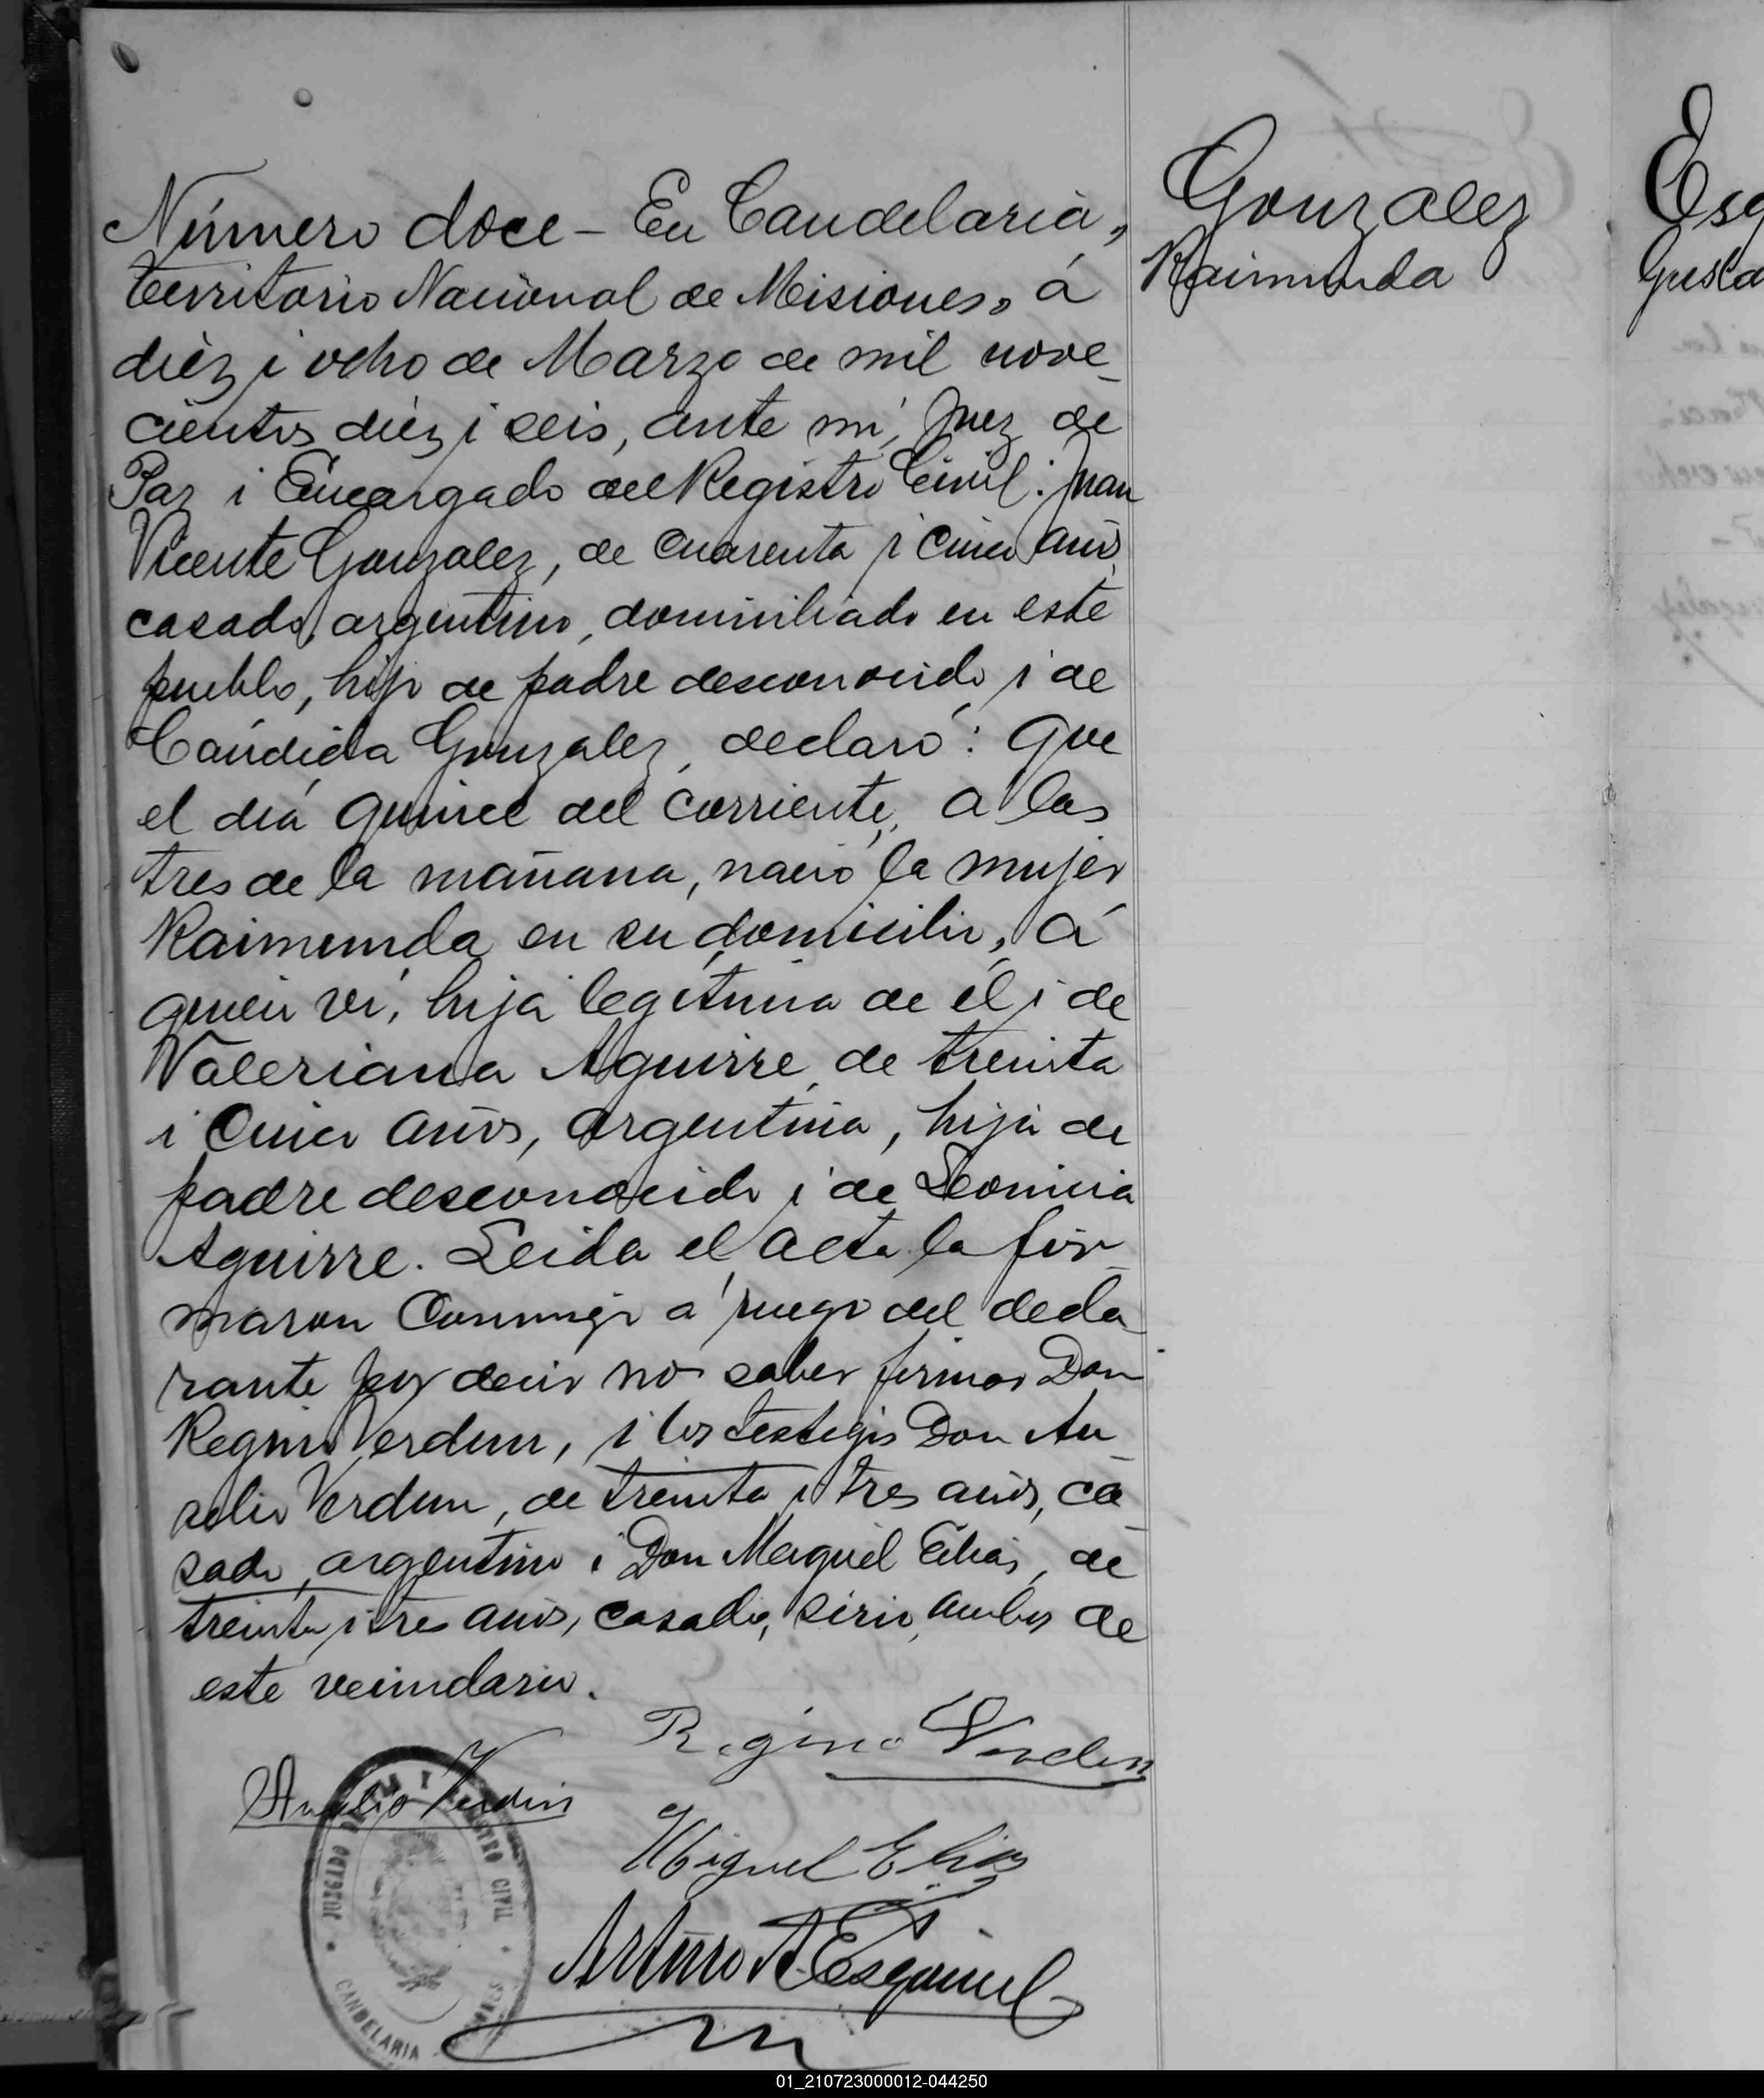 Número doce – En Candelaria,
territorio Nacional de Misiones, á
diéz i ocho de Marzo de mil nove-
cientos diéz i seis, ante mi, Juez de
Paz i Encargado del Registro Civil: Juan
Vicente Gonzalez, de cuarenta i cinco años,
casado, argentino, domiciliado en este
pueblo, hijo de padre desconocido i de
Cándida Gonzalez, declaró: Que
el día quince del corriente, á las
tres de la mañana, nació la mujer
Raimunda en su domicilio, á
quien ví, hija legítima de él i de
Valeriana Aguirre, de treinta
i cinco años, argentina, hija de
padre desconocido i de Leonicia
Aguirre. Leida el acta la fir-
maron conmigo á ruego del decla-
rante por decir no saber firmar Don
Regino Verdun, i los testigos Don
Verdun, de treinta i tres años, ca-
sado, argentino i Don Miguel Elias, de
treinta i tres años, casado, sirio, ambos de
este vecindario.
Regino Verdun
Verdun
Miguel Elias
Arturo A. Esquivel
REGISTRO CIVIL
CANDELARIA MISIONES
Gonzalez
Raimunda
Esq
Gusta
01_210723000012-044250